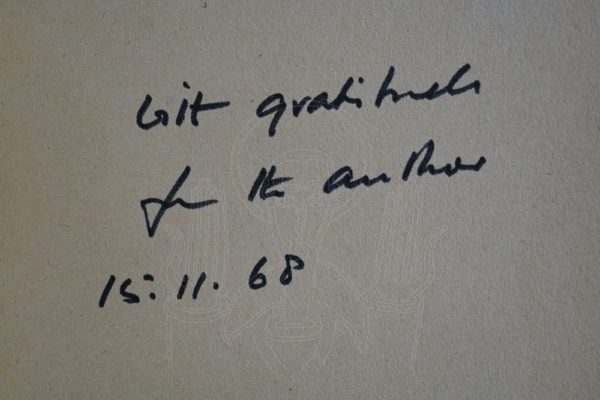 with gratitude
from the author
15.11.68